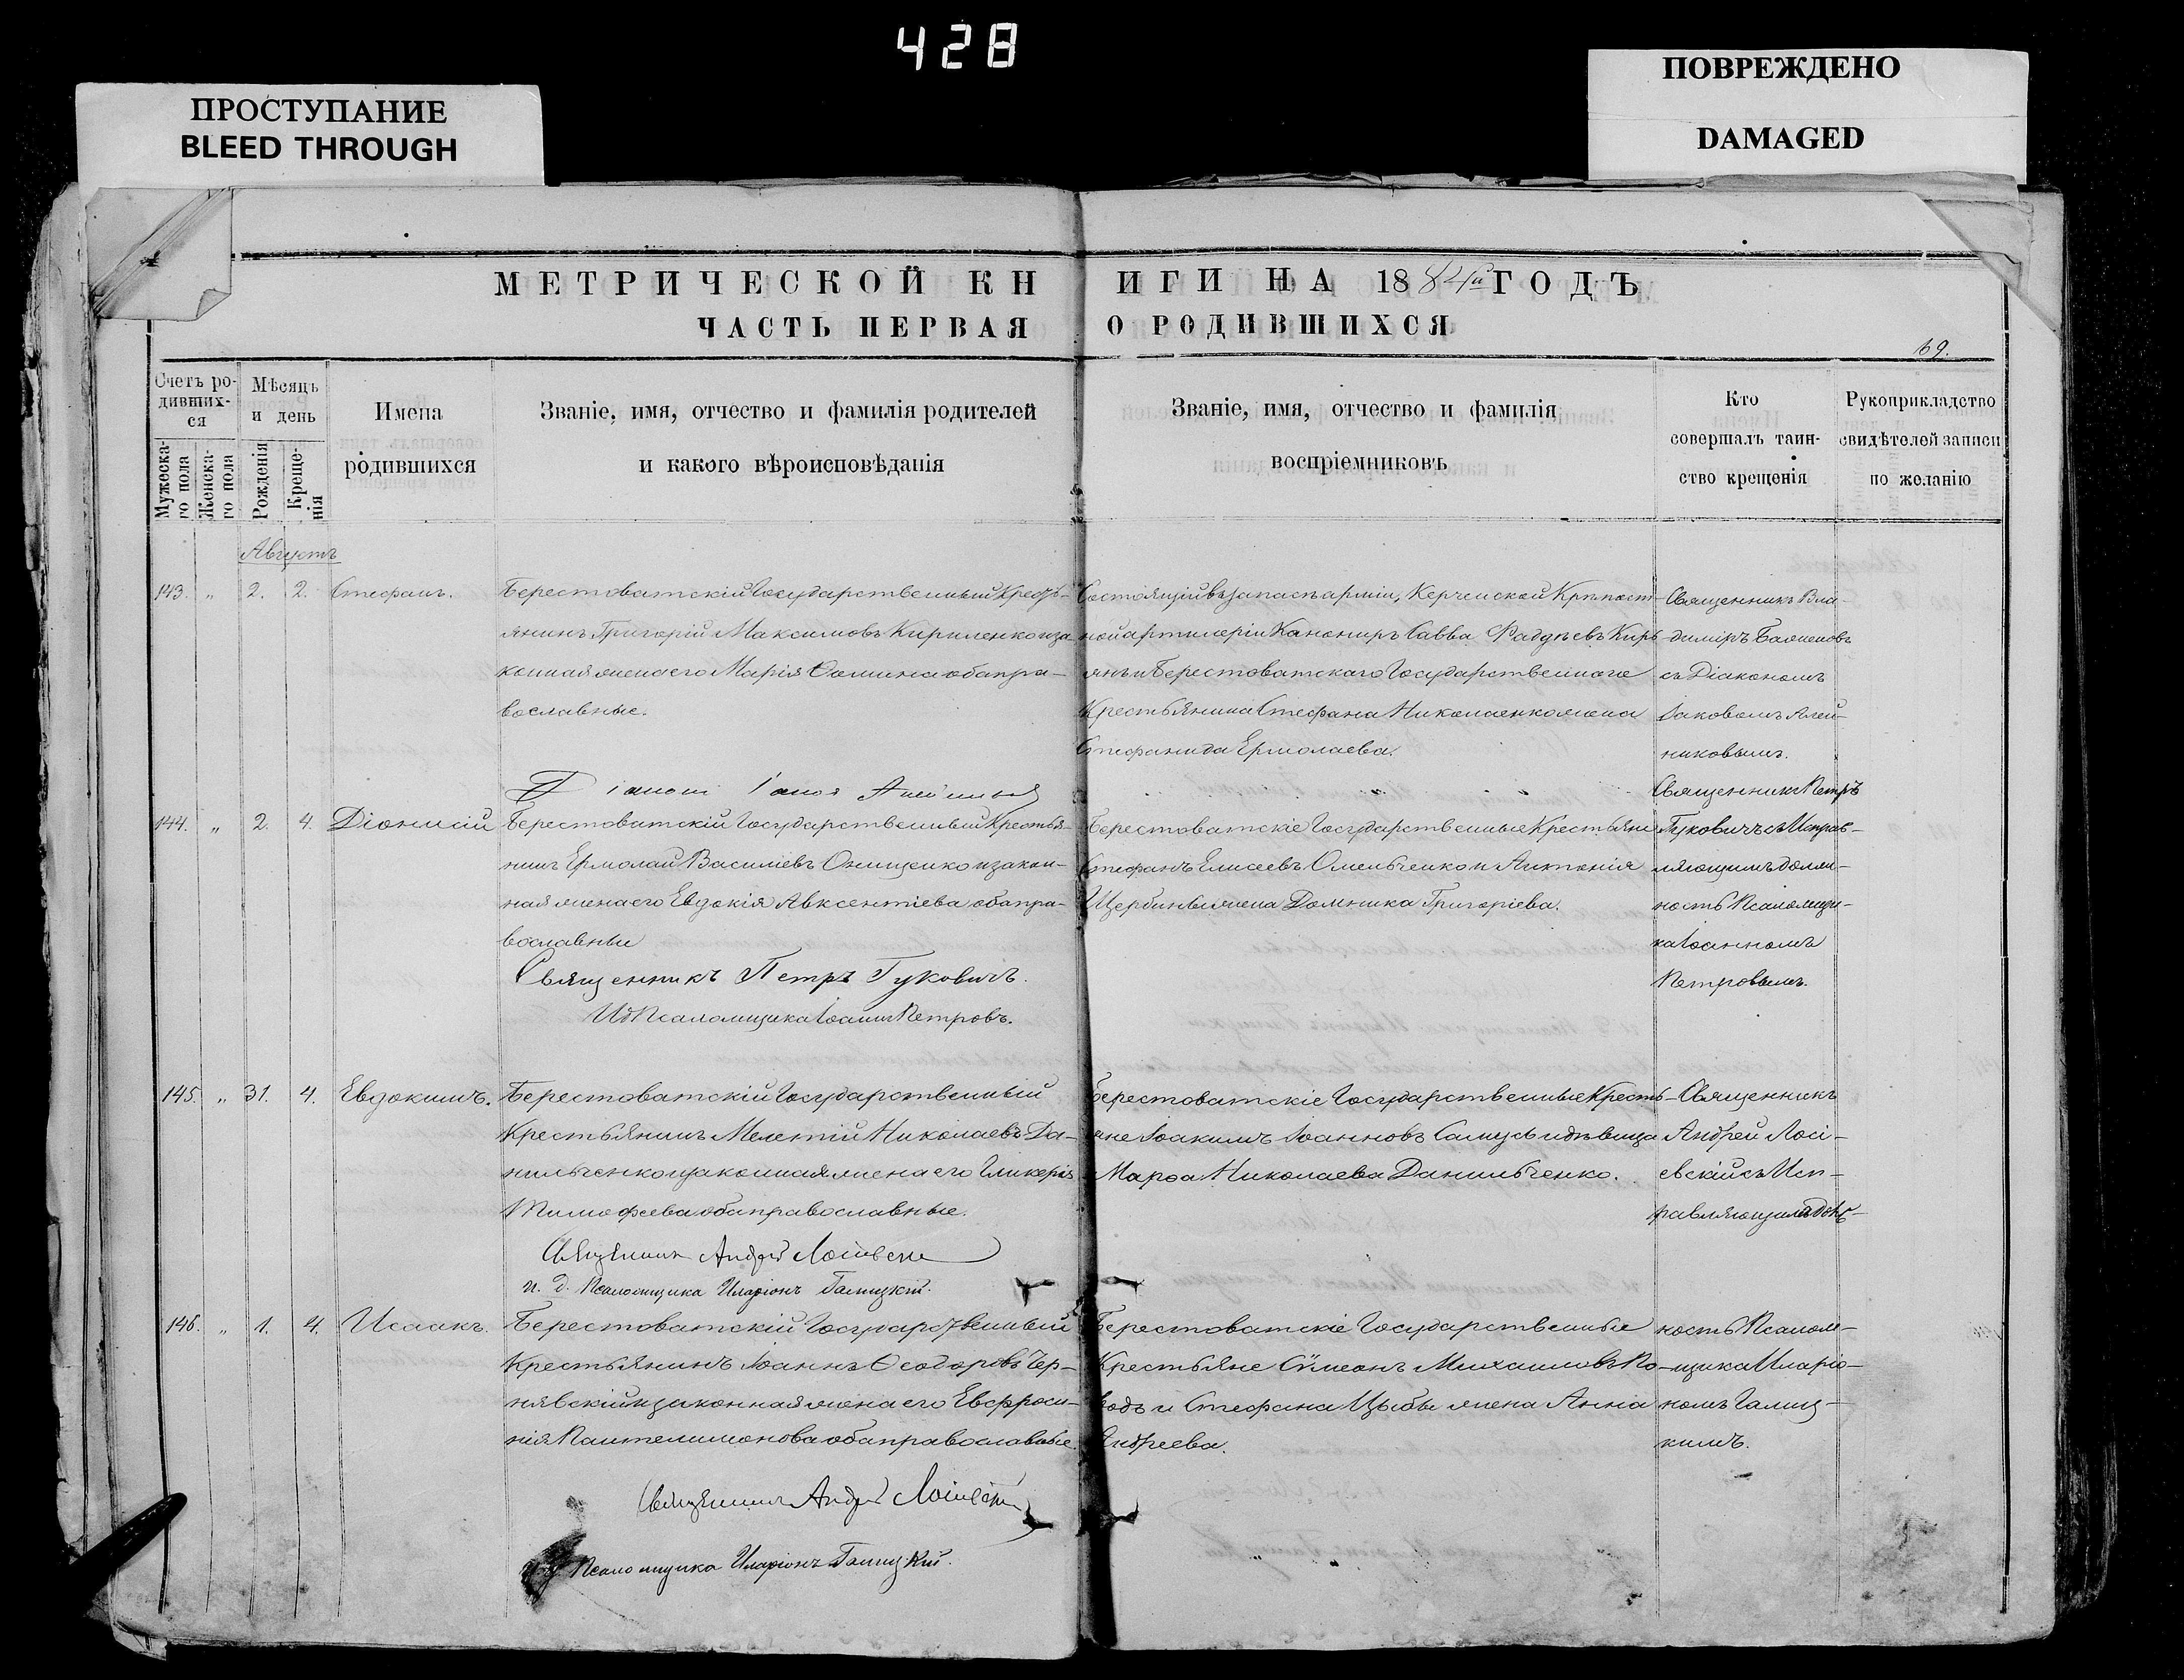 428
ПРОСТУПАНИЕ
BLEED THROUGH
ПОВРЕЖДЕНО
DAMAGED
МЕТРИЧЕСКОЙ КНИГИ НА 1884й ГОДЪ
ЧАСТЬ ПЕРВАЯ О РОДИВШИХСЯ
69.
Счетъ родившихся
Мужеска-го пола
Женска-го пола
Мѣсяцъ и день
Рожденія
Креще-нія
Имена
родившихся
Званіе, имя, отчество и фамилія родителей
и какого вѣроисповѣданія
Званіе, имя, отчество и фамилія
воспріемниковъ
Кто
совершалъ таин-
ство крещенія
Рукоприкладство
свидѣтелей записи
по желанію
Августъ
143. „ 2. 2. Стефанъ.
Берестоватскій Государственный Кресть-
янинъ Григорій Максимовъ Кириленко и за
конная жена его Марія Ѳомина оба пра-
вославные.
Состоящій въ запасѣ арміи, Керченской Крѣпост-
ной артилеріи Канониръ Савва
и Берестоватскаго Государственнаго
Крестьянина Стефана Николаенко жена
Стефанида Ермолаева.
Священникъ Вла-
диміръ
съ Діакономъ
Іаковомъ Алей-
никовымъ.
144. „ 2. 4. Діонисій
Берестоватскій Государственный Крестья-
нинъ Ермолай Василіевъ Онищенко и закон-
ная жена его Евдокія Авксентіева оба пра-
вославные
Священникъ Петръ Гуковичъ.
ИдПсаломщика Іоаннъ Петровъ.
Берестоватскіе Государственные Крестьяне
Стефанъ Елисеевъ Омельченко и Антонія
Щербины жена Домника Григоріева.
Священникъ Петръ
Гуковичъ съ Исправ-
ляющимъ долж-
ность Псаломщи-
ка Іоанномъ
Петровымъ.
145. „ 31. 4. Евдокимъ.
Берестоватскій Государственный
Крестьянинъ Мелетій Николаевъ Да-
нильченко и законная жена его Гликерія
Тимофеева оба православные.
Священникъ Андрей
и. д. Псаломщика Иларіонъ Галицкій.
Берестоватскіе Государственные Кресть-
яне Іоакимъ Іоанновъ Самусь и дѣвица
Марѳа Николаева Данильченко.
Священникъ
Андрей Лосі-
евскій съ Исп-
равляющимъ долж-
146. „ 1. 4. Исаакъ.
Берестоватскій Государственный
Крестьянинъ Іоаннъ Ѳеодоровъ Чер-
нявскій и законная жена его Евфроси-
нія Пантелимонова оба православные.
Священникъ Андрей
и д Псаломщика Иларіонъ Галицкій.
Берестоватскіе Государственные
Крестьяне Сѵмеонъ Михаиловъ
и Стефана Цыбы жена Анна
Андреева.
ность Псалом-
щика Иларіо-
номъ Галиц-
кимъ.